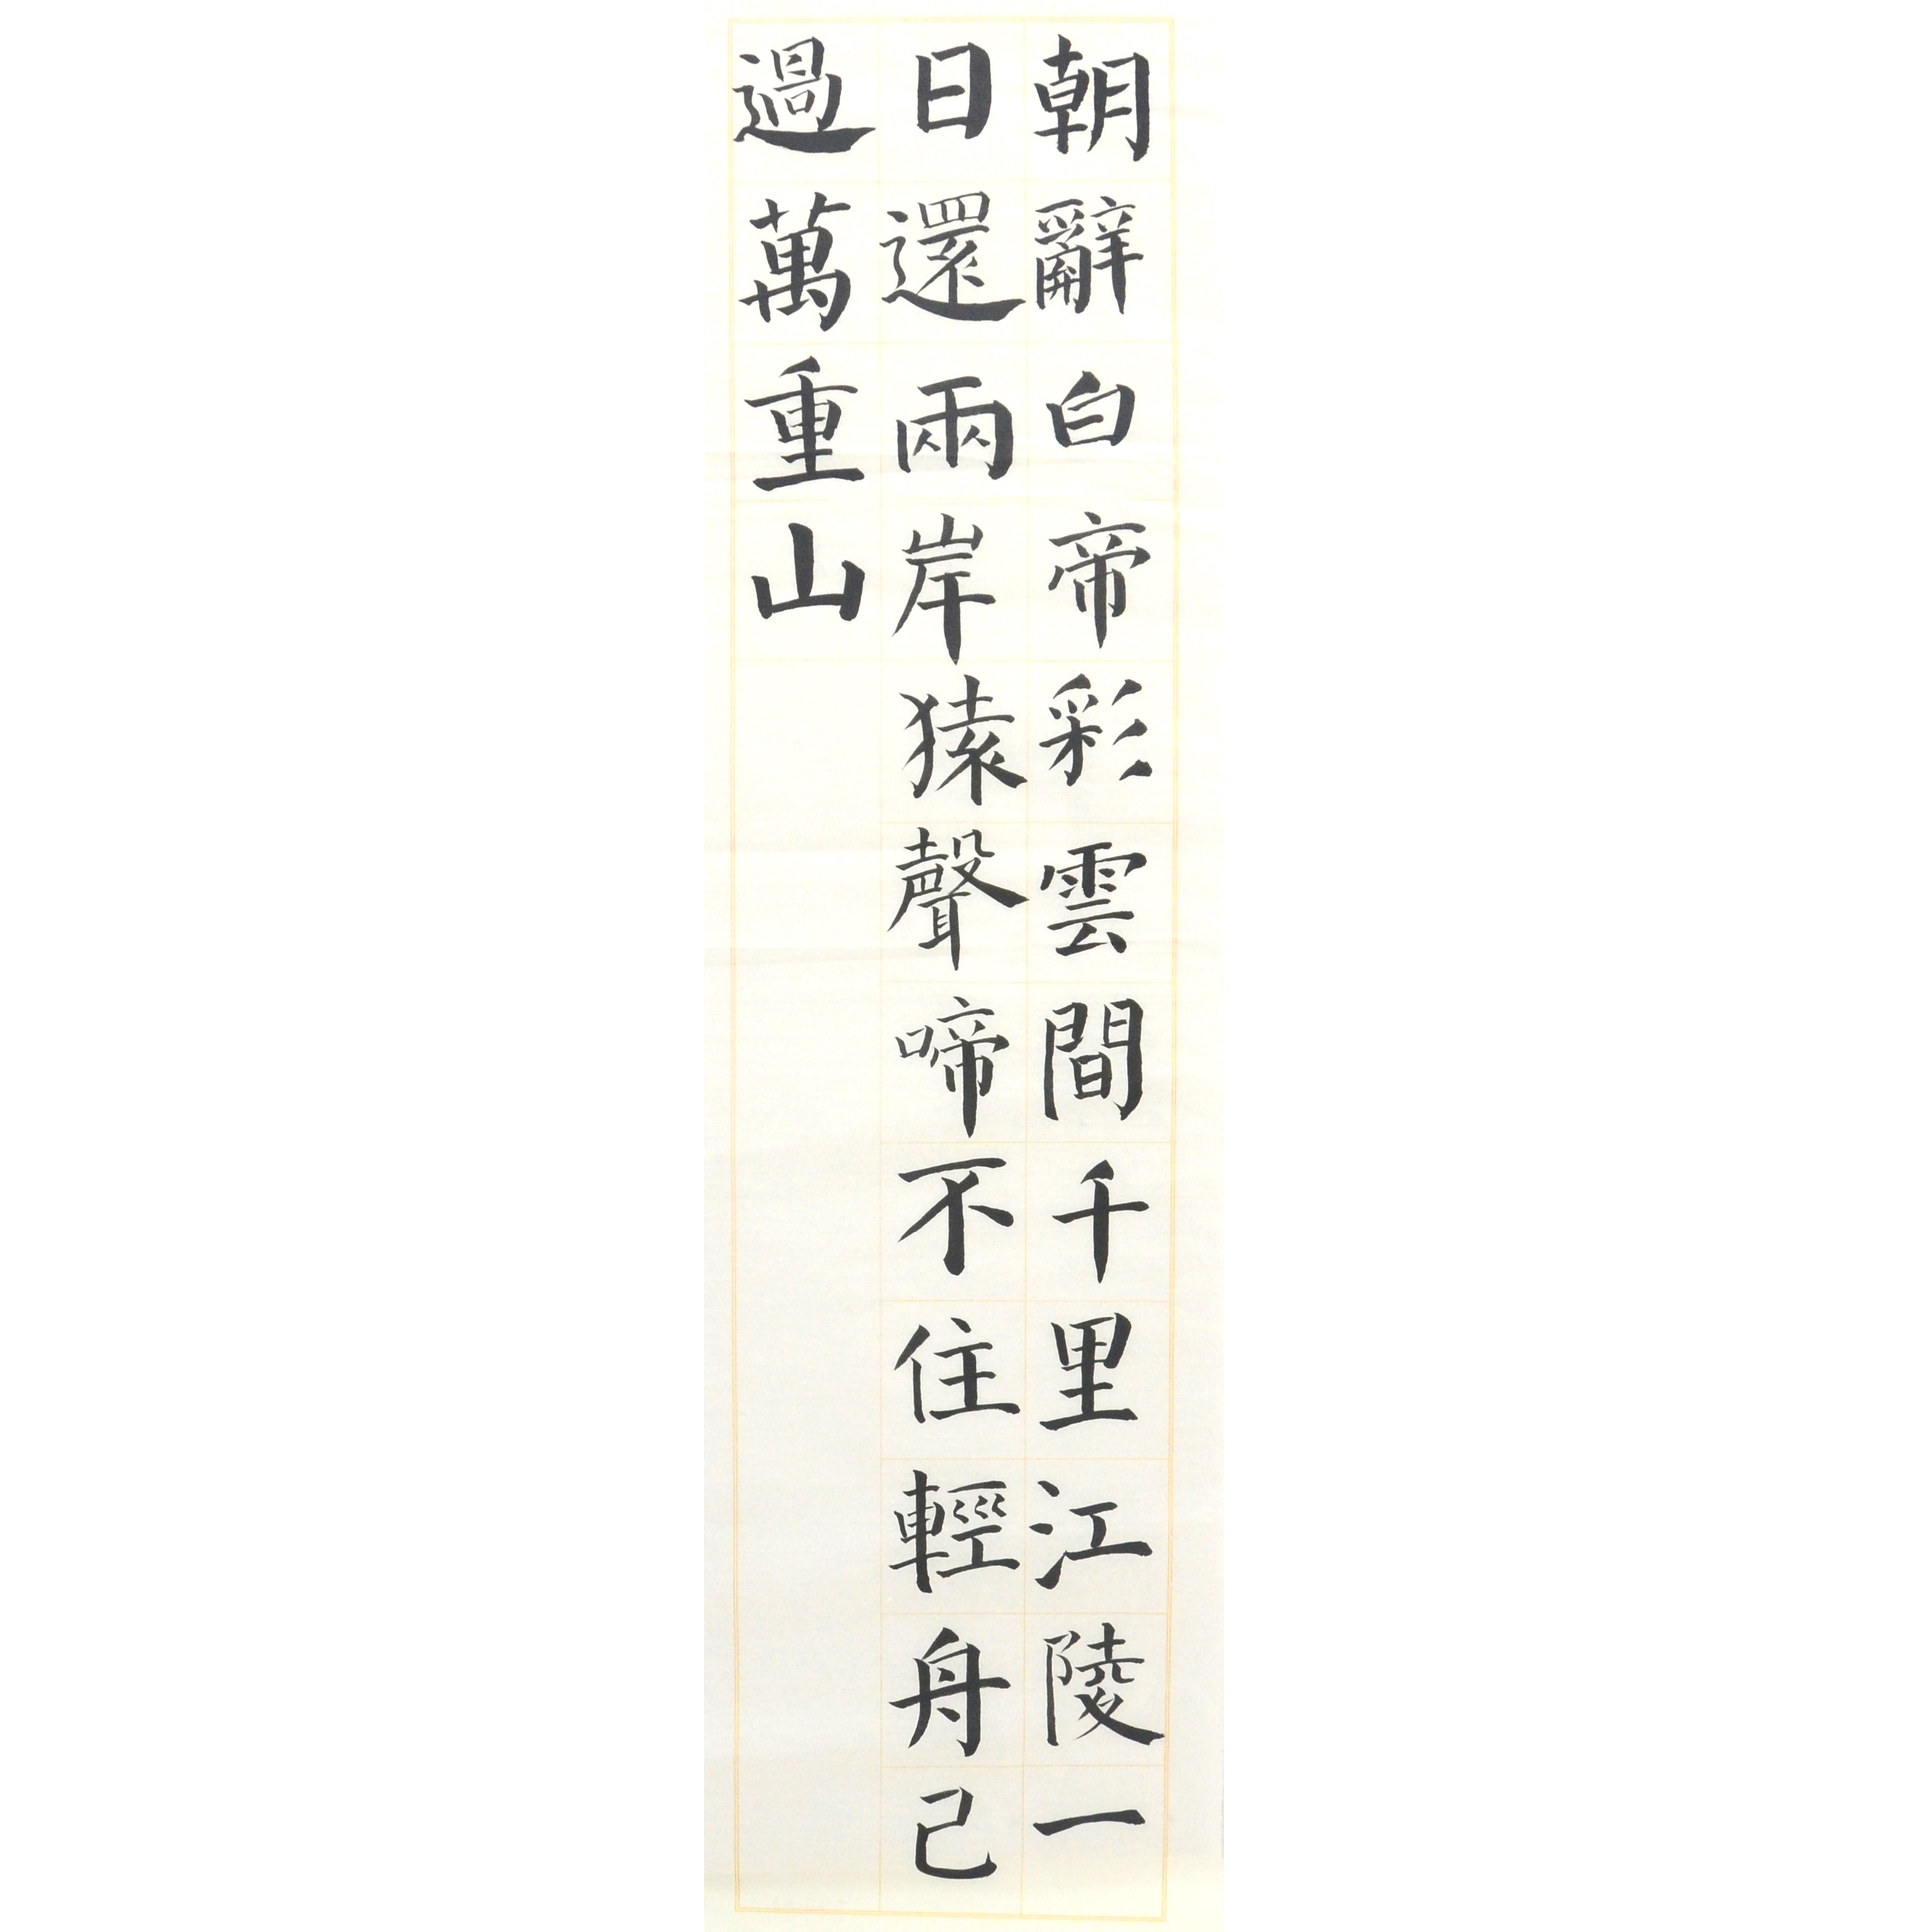 朝辭白帝彩雲間千里江陵一
日還兩岸猿聲啼不住輕舟已
過萬重山